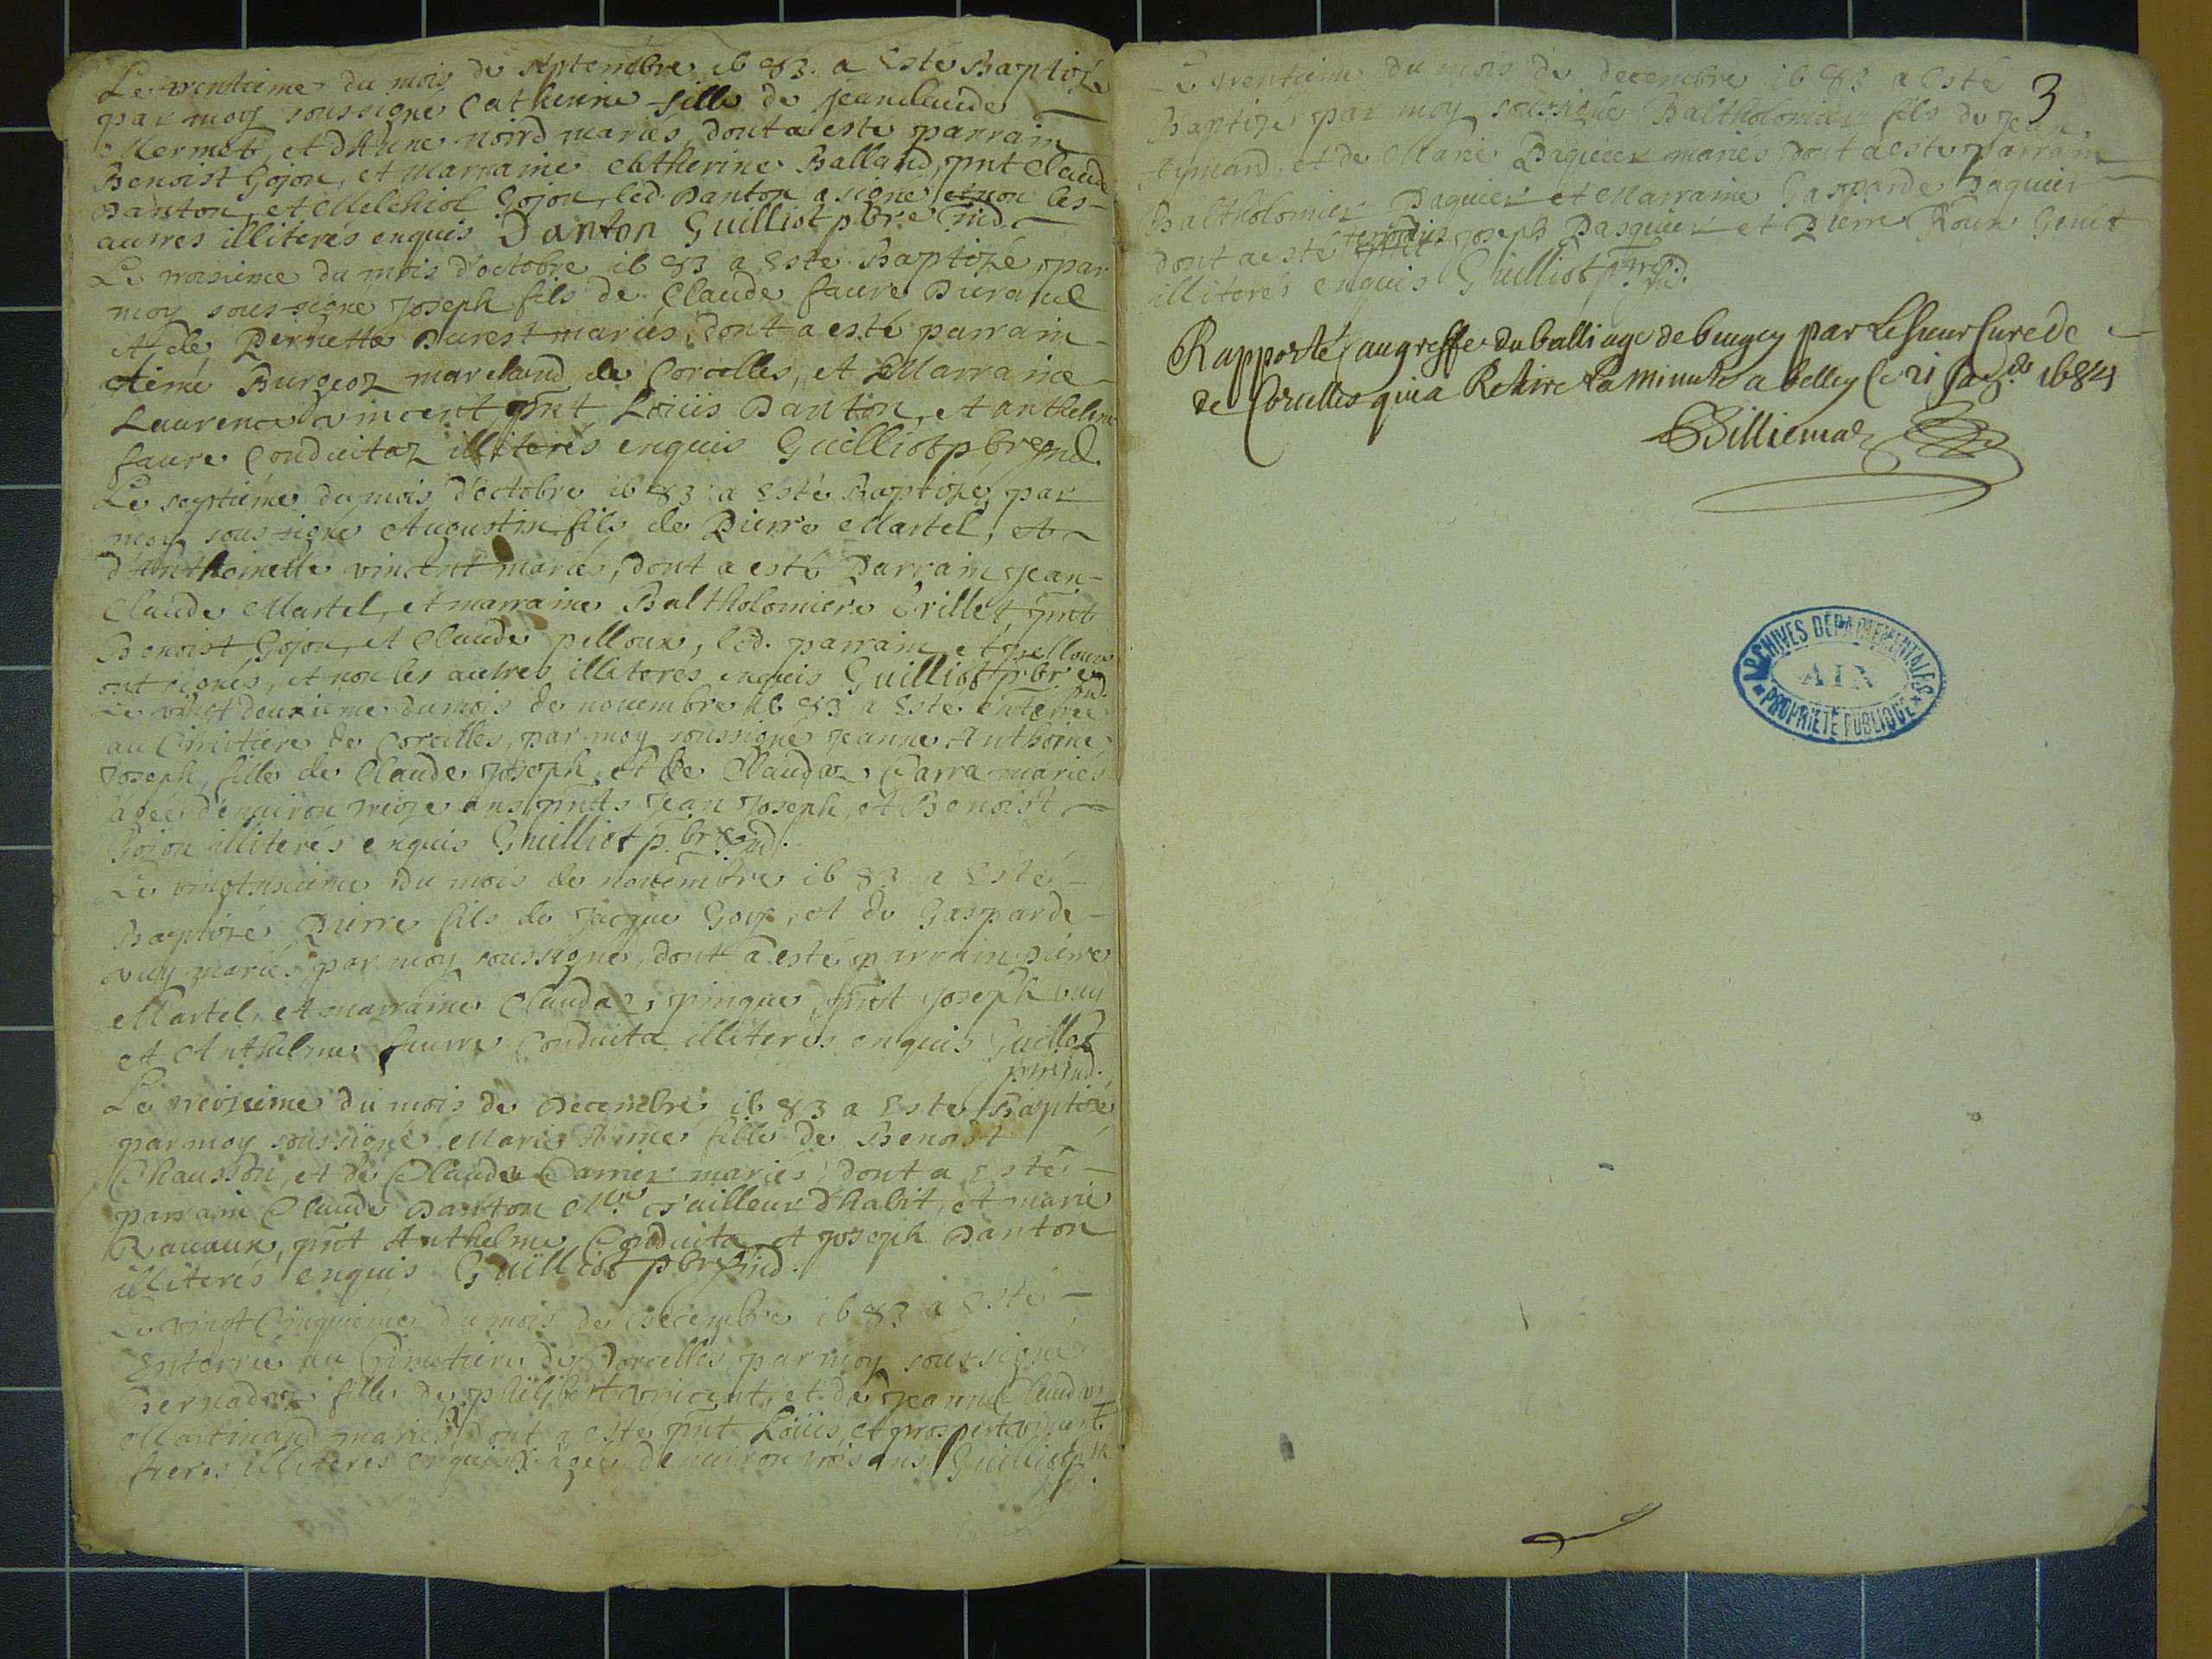 Le trentieme du mois de septembre 1683. a Esté Baptizée
par moy soussigné Catherine fille de Jeanclaude
Mermet, et d'Anne noird mariés, dont a esté parrain
Benoist Gojon, et marraine Catherine Balland, pnt Claude
Danton, et Melchiol Gojon, led. Danton a signé et non les
autres illiterés enquis Danton Guilliot pbre ind.
Le troisieme du mois d'octobre 1683 a Esté Baptizé, par
moy soussigné Joseph fils de Claude faure Duraful
et de Pernette Durest mariés, dont a esté parrain
Aimé Burgeoz marchand de Corcelles, et Marraine
Laurence vincent, pnt Loüis Danton, et anthelme
faure Conduitaz illiterés enquis Guilliot pbre ind.
Le septieme du mois d'octobre 1683 a Esté Baptizé, par
moy soussigné Augustin fils de Pierre Martel, et
d'Anthoinette vincent mariés, dont a esté Parrain Jean
Claude Martel, et marraine Baltholomiere Brillet, pnt
Benoist Gojon, et Claude pelloux, led. parrain, et pelloux
ont signés, et non les autres illiterés enquis Guilliot pbre ind.
Le vingt deuxieme du mois de nouembre 1683 a Esté Enterrée
au Cimetiere de Corcelles, par moy soussigné Jeanne Anthoine
Joseph, fille de Claude Joseph, et de Claudaz Carra mariés
agée d'enuiron treize ans pnts Jean Joseph, et Benoist
Gojon illiterés enquis Guilliot pbre ind.
Le vingtsixieme du mois de nouembre 1683 a Esté
Baptizé Pierre fils de Jacque Goyf, et de Gasparde
vuy mariés par moy soussigné, dont a esté parrain Pierre
Martel, et marraine Claudaz pingue, pnt Joseph vuy
et Anthelme faure Conduita illiterés enquis Guilliot
pbre ind.
Le treizieme du mois de Decembre 1683 a Esté Baptizé
par moy soussigné, Marie Aimé fille de Benoist
Chausson, et de Claudaz Carrier mariés, dont a Esté
parrain Claude Danton Mtre tailleur d'habit, et marie
Rauaux, pnt Anthelme Conduita, et Joseph Danton
illiterés enquis Guilliot pbre ind.
Le vingt Cinquieme du mois de Decembre 1683 a Esté
Enterrée au Cimetiere de Corcelles par moy soussigné
Bernadaz fille de philibert vincent, et de Jeanne Claudaz
Martinand mariés, dont a esté pnt Loüis, et prospert vincent
freres illiterés enquis agée d'enuiron trois ans Guilliot pbre
ind.
3
Le trentieme du mois de decembre 1683 a Esté
Baptizé par moy soussigné Baltholomier fils de Jean
Aymard, et de Marie Paquier mariés dont a esté parrain
Baltholomier Paquier et Marraine Gasparde Paquier
dont a esté temoins Joseph Pasquier et Pierre Roux Genet
illiterés enquis Guilliot pbre ind.
Rapporté au greffe du balliage de beugey par Le sieur Curé de
de Corcelles qui a Retiré La minute a belley Ce 21 Jan. 1684
Billiemaz
ARCHIVES DEPARTEMENTALES
AIN
PROPRIÉTÉ PUBLIQUE